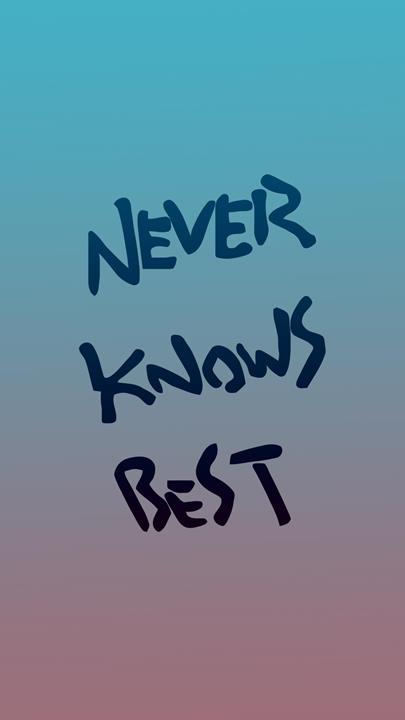 NEVER
KNOWS
BEST